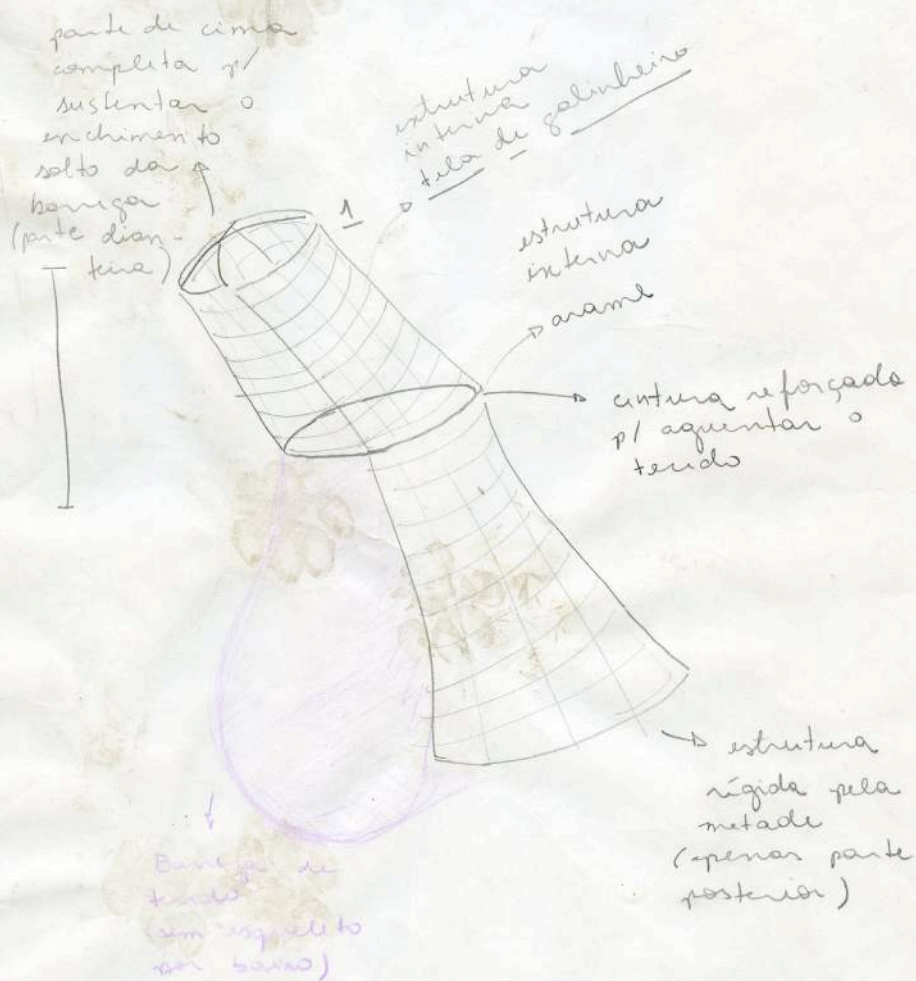 parte de cima
completa p/
sustentar o
enchimento
solto da
barriga
(parte dian-
teira)
1
estrutura
interna
tela de galinheiro
estrutura
interna
arame
cintura reforçada
p/ aguentar o
tecido
estrutura
rígida pela
metade
(apenas parte
posterior)
Barriga de
tecido
(sem esqueleto
por baixo)